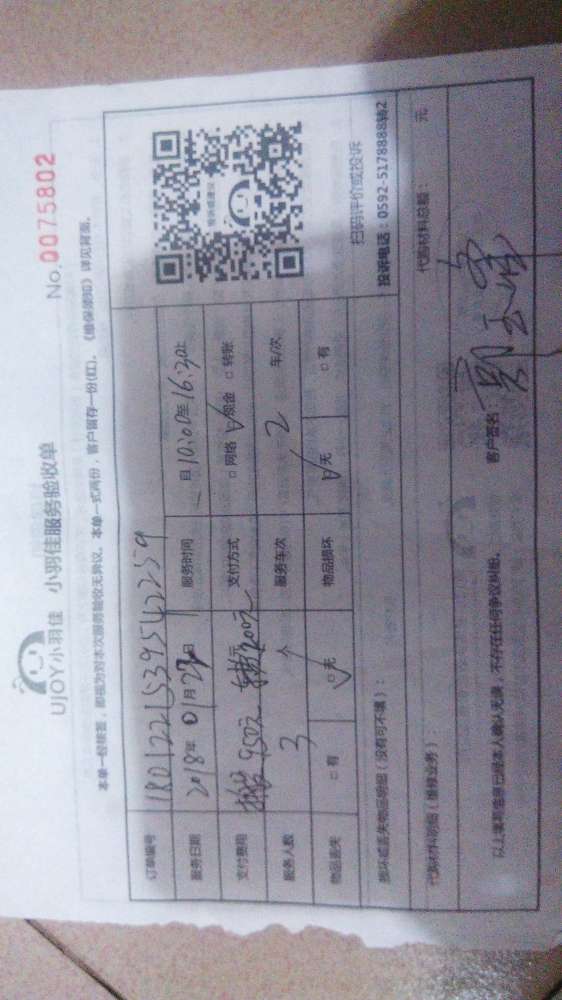 UJOY小羽佳 小羽佳服务验收单
No. 0075802
本单一经签署，即视为对本次服务验收无异议。本单一式两份，客户留存一份(红)。《维保须知》详见背面。
订单编号
服务日期 2018年01月22日 服务时间 自10:00至16:30止
支付费用 搬 950元 支付方式 □网络 ☑现金 □转账
服务人数 3 个 服务车次 2 车/次
物品丢失 □有 ☑无 物品损坏 ☑无 □有
扫码评价或投诉
投诉电话：0592-5178888转2
损坏或丢失物品明细（没有可不填）：
代购材料明细（维修业务）： 代购材料总额： 元
以上填写信息已经本人确认无误，不存在任何争议纠纷。 客户签名：